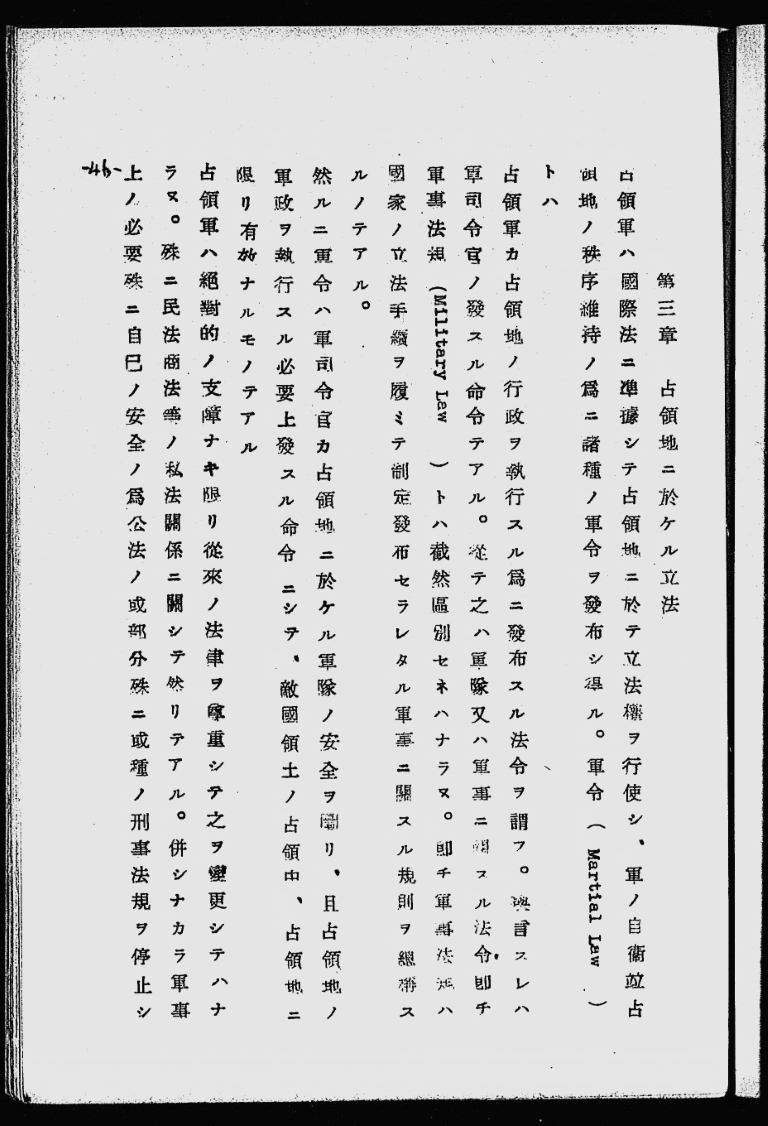 第三章 占領地ニ於ケル立法
占領軍ハ國際法ニ準據シテ占領地ニ於テ立法權ヲ行使シ、軍ノ自衞竝占
領地ノ秩序維持ノ爲ニ諸種ノ軍令ヲ發布シ得ル。軍令(Martial Law)
トハ
占領軍カ占領地ノ行政ヲ執行スル爲ニ發布スル法令ヲ謂フ。換言スレハ
軍司令官ノ發スル命令テアル。從テ之ハ軍隊又ハ軍事ニ關スル法令卽チ
軍事法規(Military Law)トハ截然區別セネハナラヌ。卽チ軍事法規ハ
國家ノ立法手續ヲ履ミテ制定發布セラレタル軍事ニ關スル規則ヲ總稱ス
ルノテアル。
然ルニ軍令ハ軍司令官カ占領地ニ於ケル軍隊ノ安全ヲ圖リ、且占領地ノ
軍政ヲ執行スル必要上發スル命令ニシテ、敵國領土ノ占領中、占領地ニ
限リ有效ナルモノテアル
占領軍ハ絕對的ノ支障ナキ限リ從來ノ法律ヲ尊重シテ之ヲ變更シテハナ
ラヌ。殊ニ民法商法等ノ私法關係ニ關シテ然リテアル。併シナカラ軍事
上ノ必要殊ニ自己ノ安全ノ爲公法ノ或部分殊ニ或種ノ刑事法規ヲ停止シ
-46-